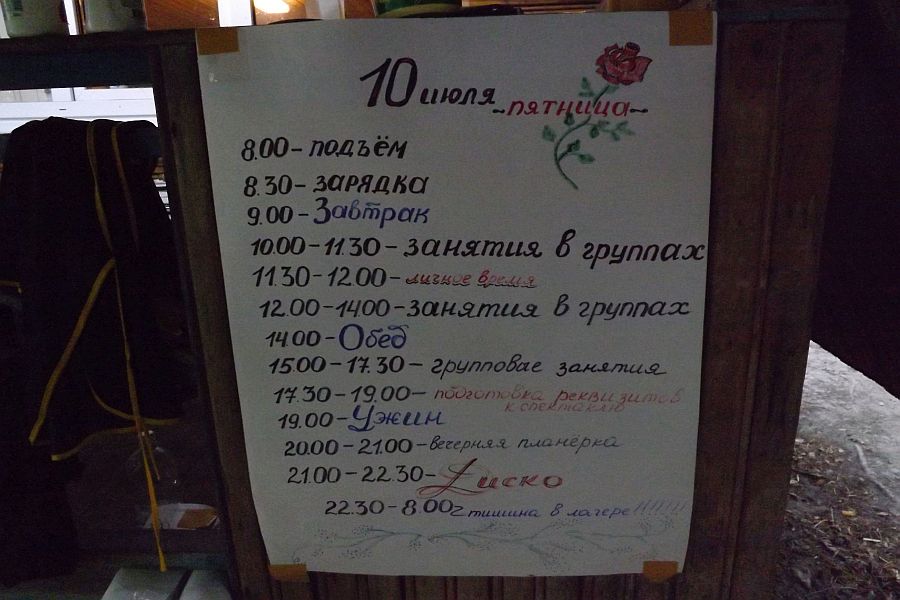 10 июля ~пятница~
8.00 – подъём
8.30 – зарядка
9.00 – Завтрак
10.00 – 11.30 – занятия в группах
11.30 – 12.00 – личное время
12.00 – 14.00 – занятия в группах
14.00 – Обед
15.00 – 17.30 – групповае занятия
17.30 – 19.00 – подготовка реквизитов
к спектаклю
19.00 – Ужин
20.00 – 21.00 – вечерняя планёрка
21.00 – 22.30 – Диско
22.30 – 8.00 тишина в лагере!!!!!!